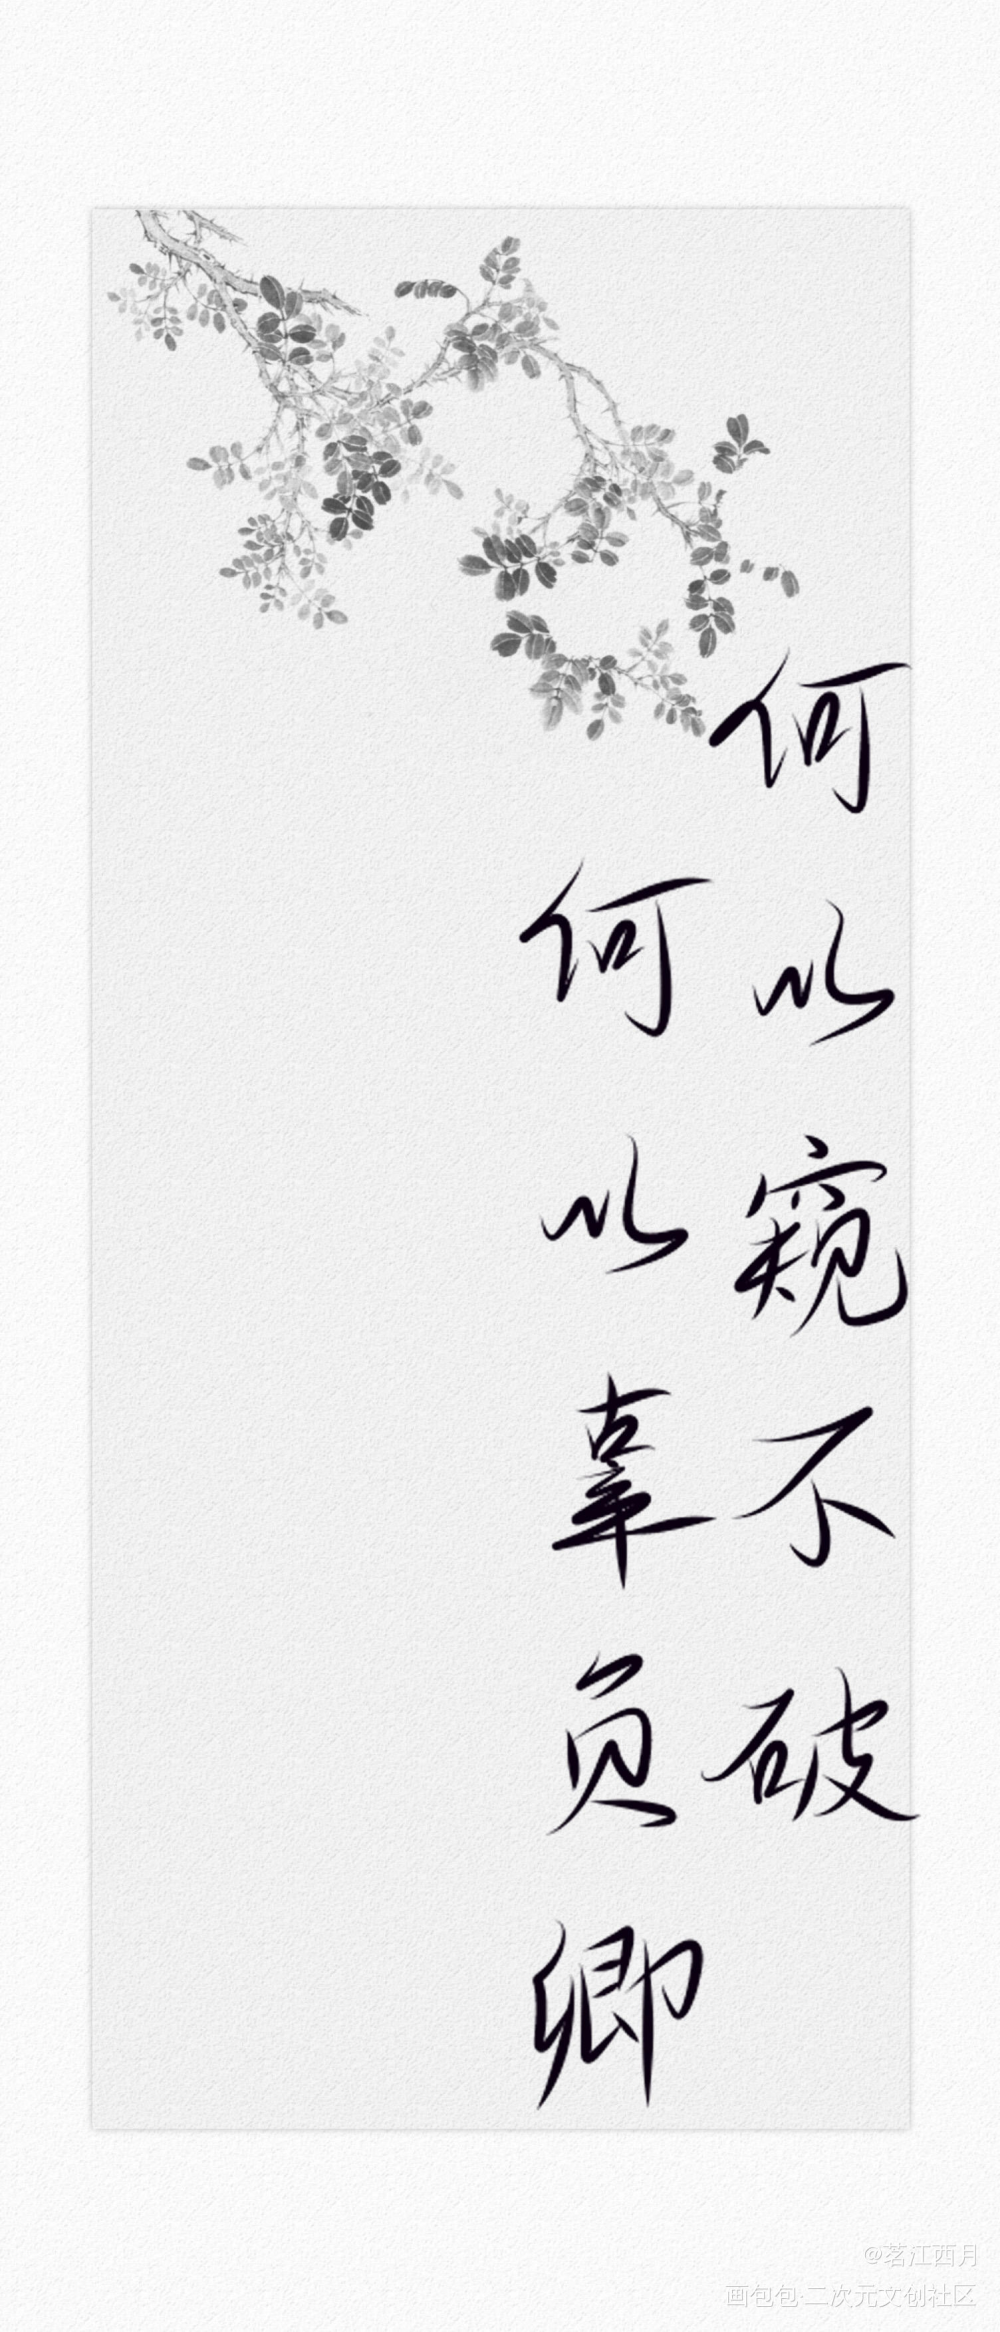 何以窥不破
何以辜负卿
@茗江西月
画包包·二次元文创社区